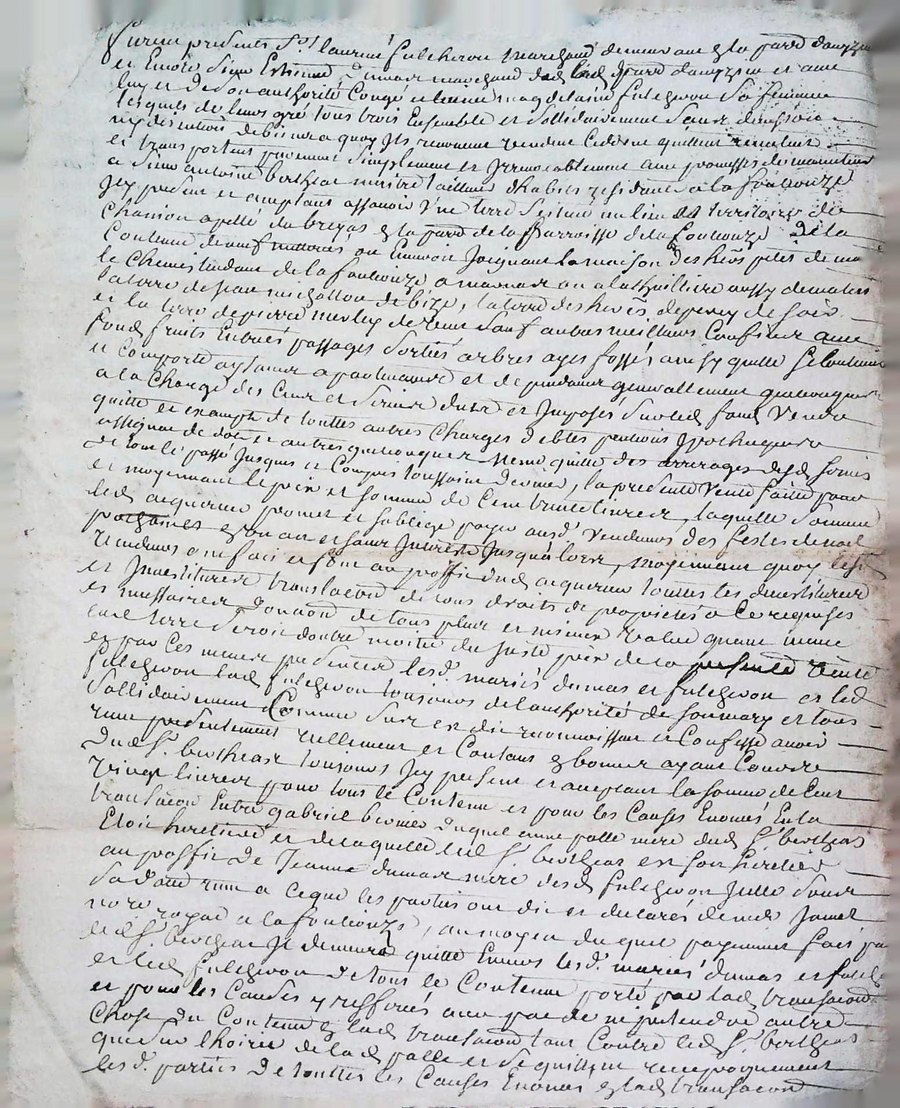 Furent presents Sr laurens fulchiron marchand demeurant en la parr dauzzin
et Encore Sieur Estienne Dumas marchand dud lieu parr dauzzin et avec
luy et de son authorité Congé et licence magdelaine fulchiron Sa femme
lesquels de leurs gré tous trois Ensemble et Sollidairement Sans division
ny discution de biens a quoy Ils renoncent vendent Ceddent quittent remettent
et transportent purement Simplement et Irrevocablement avec promesses de maintenir
a Sieur antoine bertheas maistre tailleur dhabits residant a la fouliouze
Icy present et acceptant assavoir Une terre Sestant au lieu et territoire de
Chanion apellé du breyas en la parr de la Parroisse de la fouliouze De la
Contenue de neuf metanés ou Environ Joignant la maison des hers petit de ma
le Chemin tendant de la fouliouze a aussy de matin
la terre de Jean michallon de bize, la terre des heres de perey de soir
et la terre de pierre merley de vent Sauf autres meilleurs Confins avec
fonds fruits Entrées passages Sorties arbres ayes fossés ainsy quelle Se Contient
et Comporte aysances apartenances et dependances generallement quelconques
a la Charge des Cens et Servis dus et Imposés Sur led fond Vendu
quitte et exempte de touttes autres Charges debtes pentions Ypotheques
assignat de dot et autres quelconques Meme quitte des arrerages desd Servis
de tout le passé Jusques et Compris toussaint dernier, la presente Vente faitte pour
et moyennant le prix et Somme de Cent trente livres, laquelle Somme
led acquereur promet et Soblige payer ausd. Vendeurs des festes de noel
prochaines en un an et Sans Interests Jusqualors, moyennant quoy lesd
Vendeurs ont fait et font au proffit dud acquereur touttes les devestitures
et Investitures translation de tous droits de proprieté a Ce requises
et necessaires Donation de tous plus et mieux Value quant meme
lad terre Seroit doutre moitié du Juste prix de la presente Vente
et par Ces memes presentes lesd. mariés dumas et fulchiron et led
fulchiron lad fulchiron tousjours de lauthorité de Son mary et tous
Sollidairement Comme Sus est dit reconnoissent et Confesse avoir
receu presentement reellement et Contant en bonnes ayant Cours
Dud Sr. bertheas tousjours Icy present et acceptant la Somme de Cent
Vingt livres pour tout le Contenu et pour les Causes Enoncés En la
transaction Entre gabriel Duquel anne palle mere dud Sr bertheas
Etoit heritiere et de laquelle led Sr. bertheas est Son heritier
au proffit de Jeanne dumas mere desd fulchiron Icelle Sous
Sa datte receu a Ceque les parties ont dit et declarés de me Jamet
nore royal a la fouliouze, au moyen duquel payement fait par
led Sr. bertheas Il demeure quitte Envers lesd. mariés dumas et fulch
et led fulchiron de tout le Contenu porté par lad transaction
et pour les Causes y refferés avec pacte de ne pretendre autre
Chose du Contenu en lad transaction tant Contre led Sr. bertheas
que Sur lhoirie de lad palle et Se quittent reciproquement
lesd. parties De touttes les Causes Enoncés en lad transaction